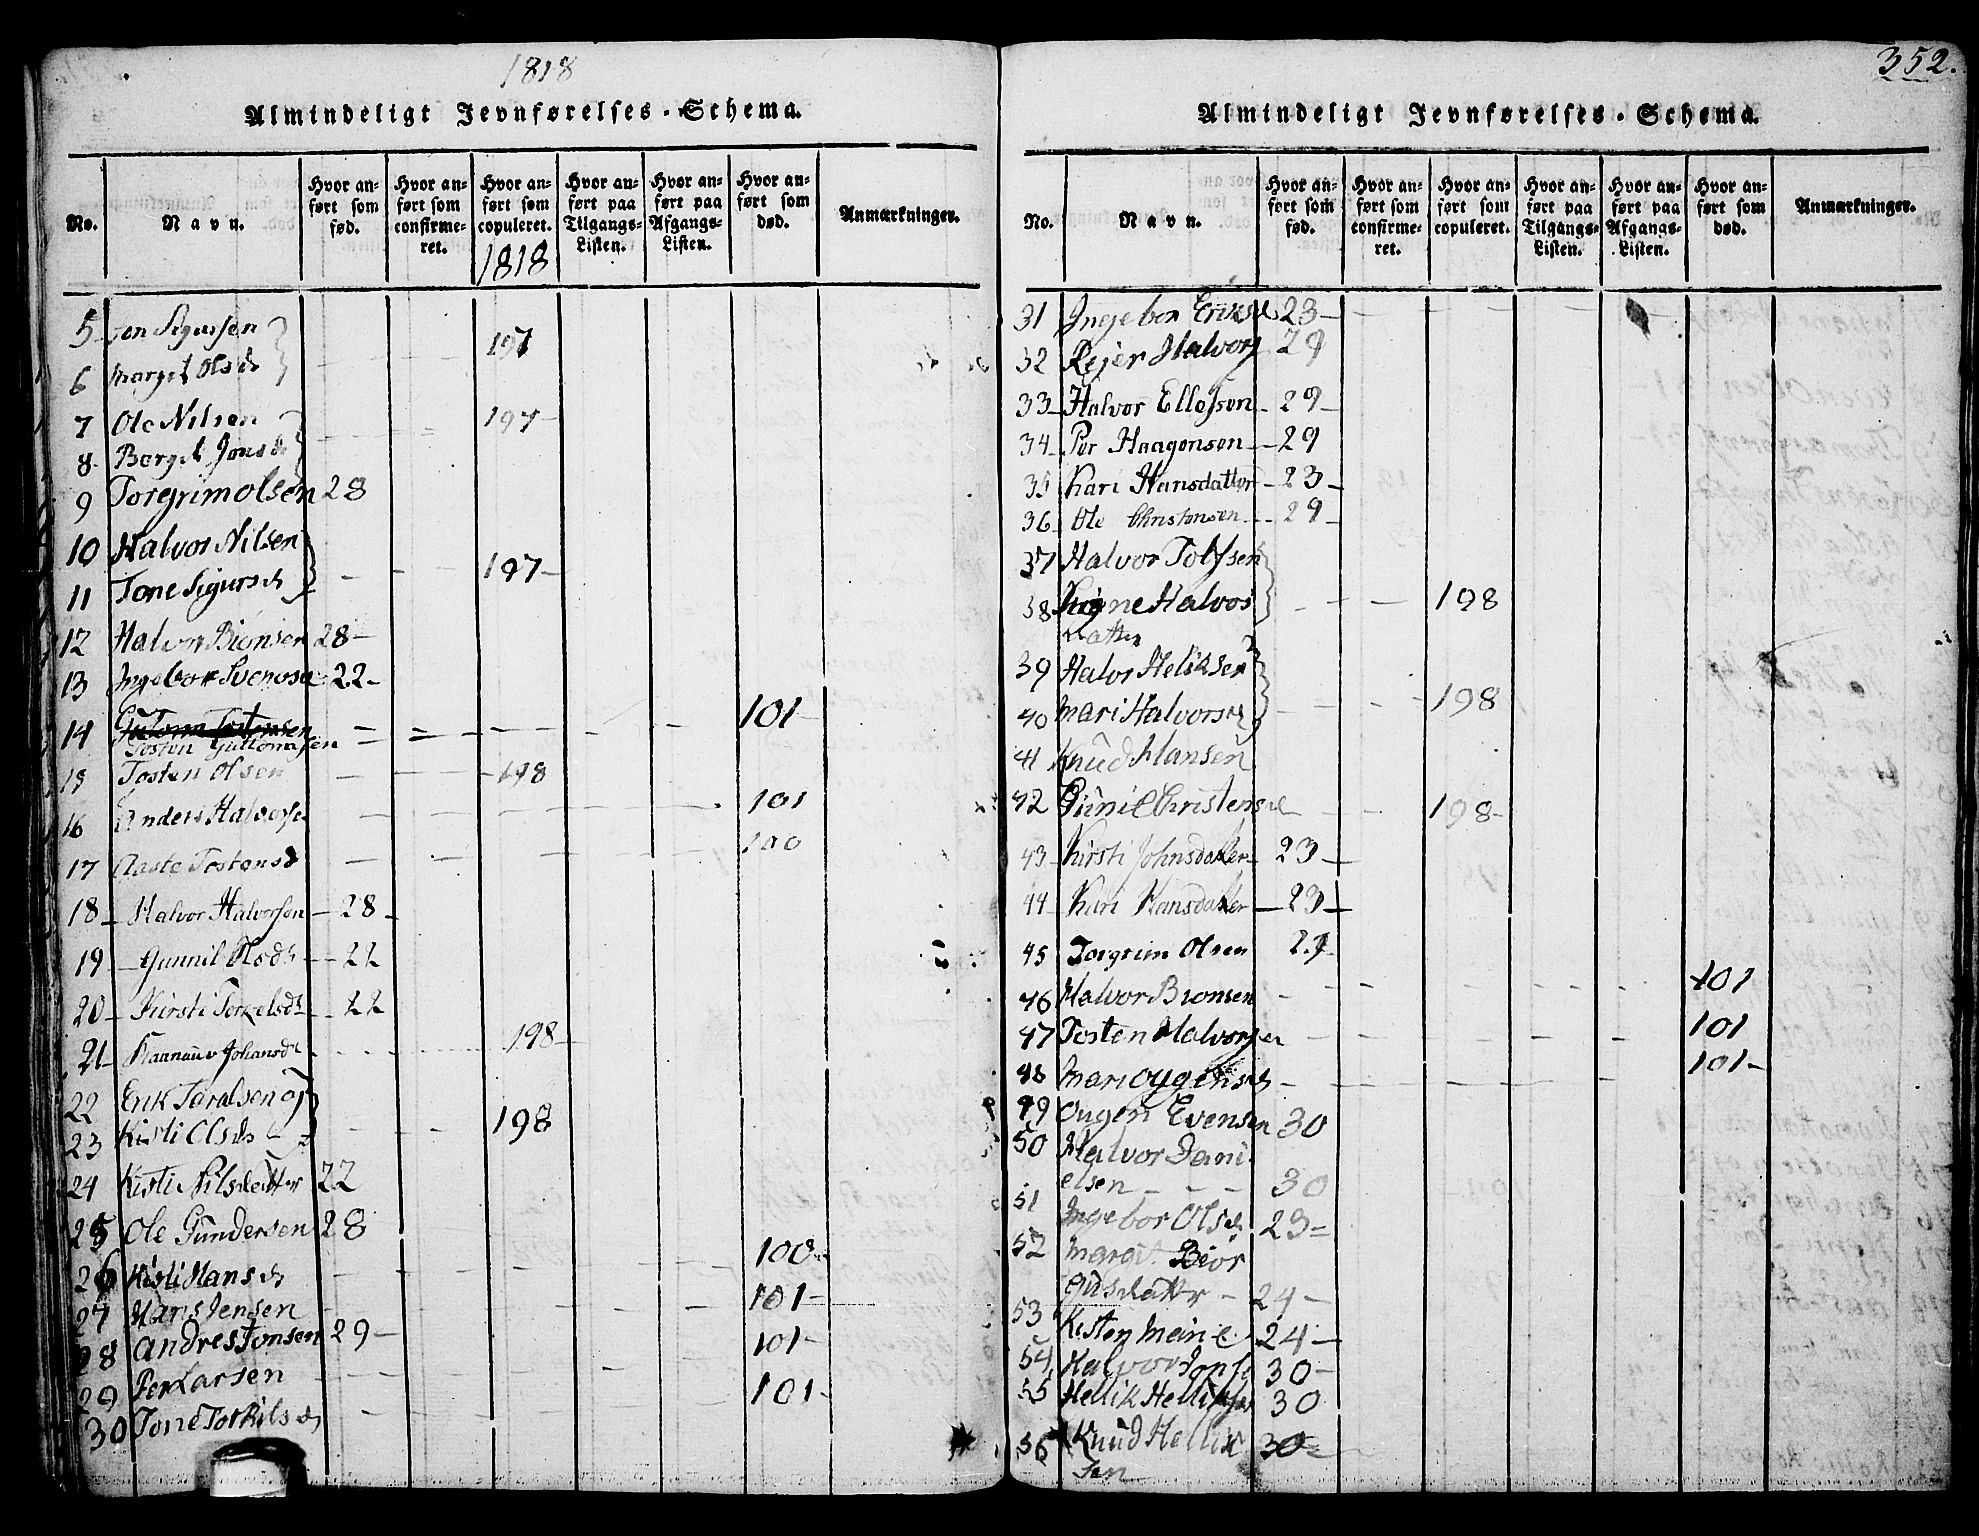 1818
Almindeligt Jevnførelses-Schema.
No. Navn. Hvor anført som fød. Hvor anført som confirmeret. Hvor anført som copuleret. Hvor anført paa Tilgangs-Listen. Hvor anført paa Afgangs-Listen. Hvor anført som død. Anmærkninger.
1818
5 Sigursen 197
6 Margit Olsd
7 Ole Nilsen 197
8 Berget Jonsd
9 Torgrim Olsen 28
10 Halvor Nilsen
11 Tone Sigursd 197
12 Halvor Biönsen 28
13 Ingebor Svensd 22
14 Guttorm Tostensen 101
Tosten Guttormsen
15 Tosten Olsen 198
16 Anders Halvorsen 101
17 Aaste Tostensd 100
18 Halvor Halvorsen 28
19 Gunnil Olsd 22
20 Kirsti Torkelsd 22
21 Johansd 198
22 Erik Taralsen og
23 Kisti Olsd 198
24 Kisti Nilsdatter 22
25 Ole Gundersen 28
26 Kisti Hansd 100
27 Hans Jensen 101
28 Andres Jonsen 29 101
29 Per Larsen
30 Tone Torkilsd 101
352.
Almindeligt Jevnførelses-Schema.
No. Navn. Hvor anført som fød. Hvor anført som confirmeret. Hvor anført som copuleret. Hvor anført paa Tilgangs-Listen. Hvor anført paa Afgangs-Listen. Hvor anført som død. Anmærkninger.
31 Ingebor Eriksd 23
32 Rejer Halvors 29
33 Halvor Ellefsen 29
34 Per Haagensen 29
35 Kari Hansdatter 23
36 Ole Christensen 29
37 Halvor Tolfsen
38 Halvors 198
datter
39 Halvor Heliksen
40 Mari Halvorsd 198
41 Knud Hansen
42 Gunil Christensd 198
43 Kirsti Johnsdatter 23
44 Kari Hansdatter 23
45 Torgrim Olsen 29
46 Halvor Bronsen 101
47 Tosten Halvorsen 101
48 Mari Oygensd 101
49 Ougen Evensen 30
50 Halvor Dani
elsen 30
51 Ingebor Olsd 23
52 Margit Biör
gusdatter 24
53 Kisten Marie 24
54 Halvor Jonse 30
55 Hellik Helliksen 30
56 Knud Hellik
sen 30